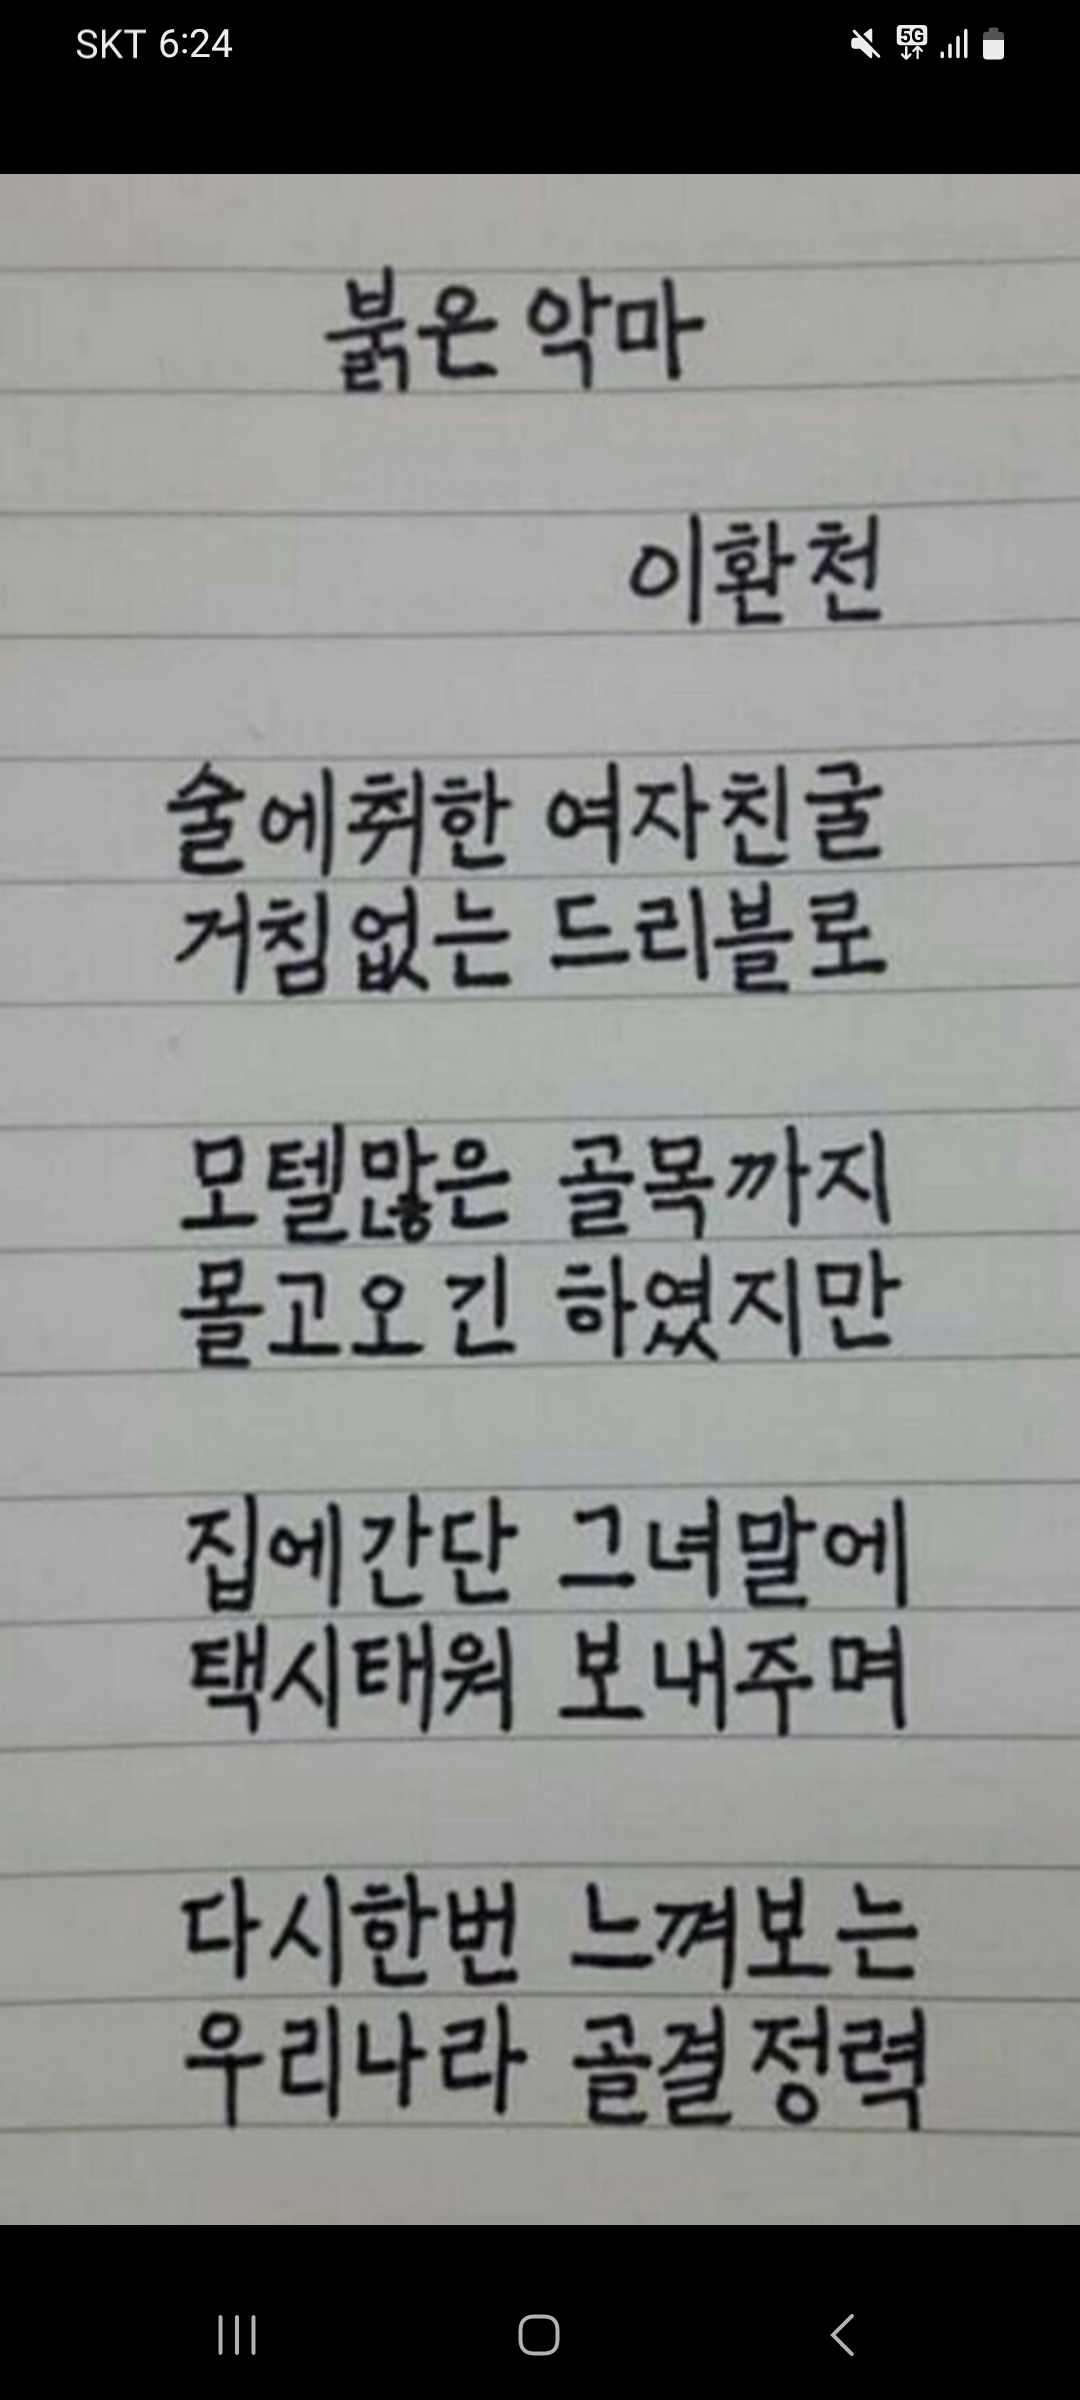 SKT 6:24
5G
붉은 악마
이환천
술에취한 여자친굴
거침없는 드리블로
모텔많은 골목까지
몰고오긴 하였지만
집에간단 그녀말에
택시태워 보내주며
다시한번 느껴보는
우리나라 골결정력